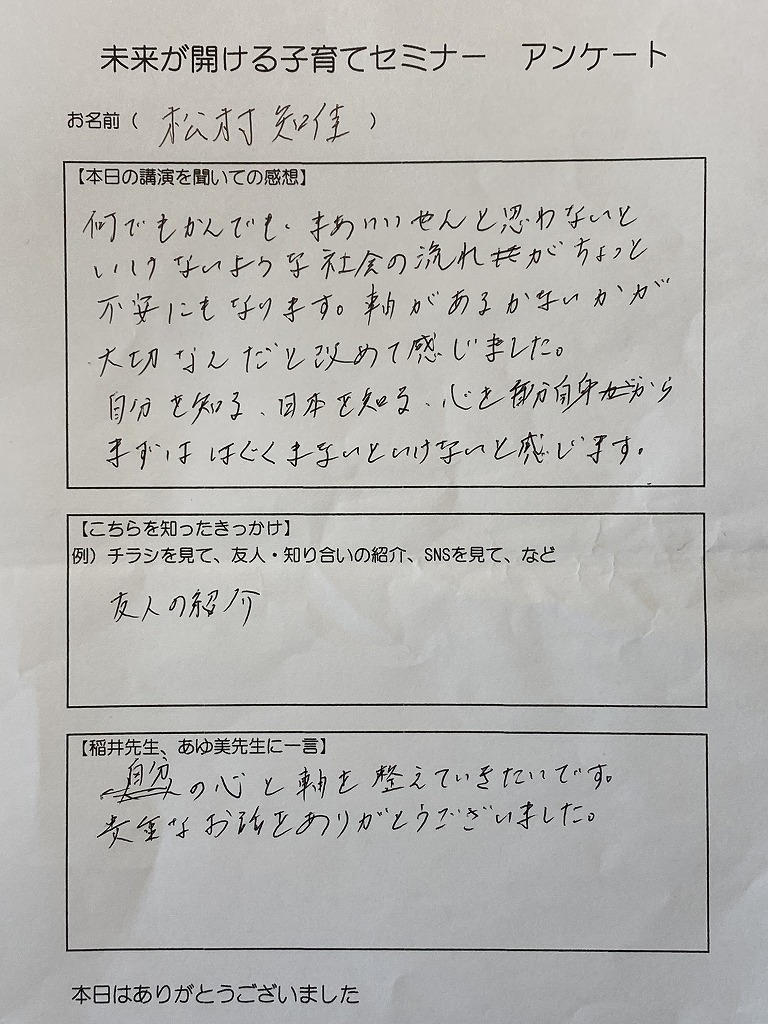 未来が開ける子育てセミナー　アンケート
お名前（ 松村 知佳 ）
【本日の講演を聞いての感想】
何でもかんでも、まあいいやんと思わないと
いけないような社会の流れがちょっと
不安にもなります。軸があるかないかが
大切なんだと改めて感じました。
自分を知る、日本を知る、心を自分自身から
まずは はぐくまないといけないと感じます。
【こちらを知ったきっかけ】
例）チラシを見て、友人・知り合いの紹介、SNSを見て、など
友人の紹介
【稲井先生、あゆ美先生に一言】
自分の心と軸を整えていきたいです。
貴重なお話をありがとうございました。
本日はありがとうございました